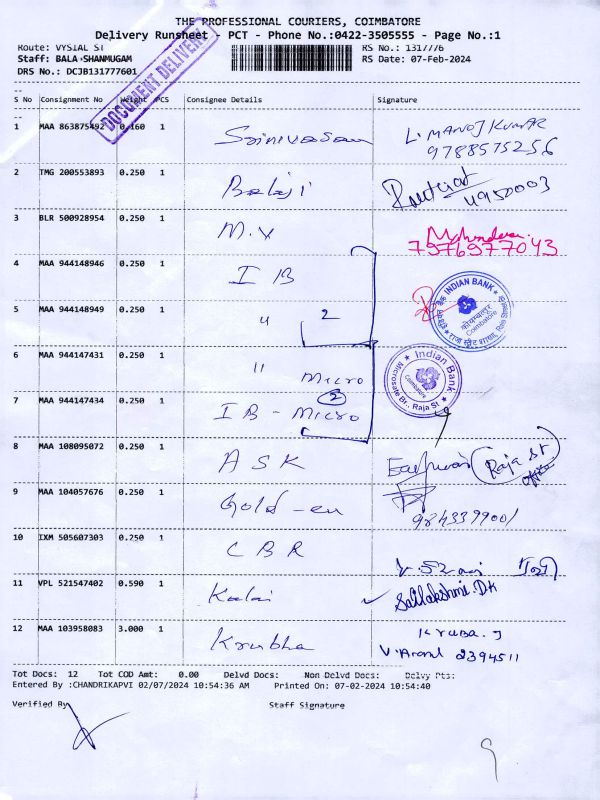 THE PROFESSIONAL COURIERS, COIMBATORE
Delivery Runsheet - PCT - Phone No.:0422-3505555 - Page No.:1
Route: VYSIAL ST
RS No.: 1317776
Staff: BALA SHANMUGAM
RS Date: 07-Feb-2024
DRS No.: DCJB131777601
DOCUMENT DELIVERY
S No Consignment No Weight PCS Consignee Details Signature
1 MAA 863875492 0.160 1 Srinivasan L. MANOJ KUMAR
9788575256
2 TMG 200553893 0.250 1 Balaji
4950003
3 BLR 500928954 0.250 1 M.Y
7976977043
4 MAA 944148946 0.250 1 I B
INDIAN BANK
Coimbatore
5 MAA 944148949 0.250 1 " 2
6 MAA 944147431 0.250 1 " Micro
Indian Bank
Coimbatore
Microsate Br., Raja St
7 MAA 944147434 0.250 1 I B - Micro 2
8 MAA 108095072 0.250 1 A S K Raja St
office
9 MAA 104057676 0.250 1 Gold - en
9843399001
10 IXM 505607303 0.250 1 C B R
11 VPL 521547402 0.590 1 Kalai Sailakshmi.DK
12 MAA 103958083 3.000 1 Krubha Kruba. J
V. Arasul 2394511
Tot Docs: 12 Tot COD Amt: 0.00 Delvd Docs: Non Delvd Docs: Delvy Pts:
Entered By :CHANDRIKAPVI 02/07/2024 10:54:36 AM Printed On: 07-02-2024 10:54:40
Verified By Staff Signature